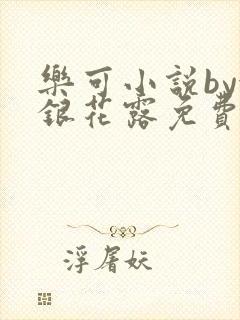 樂可小説by
銀花露免費
浮屠妖